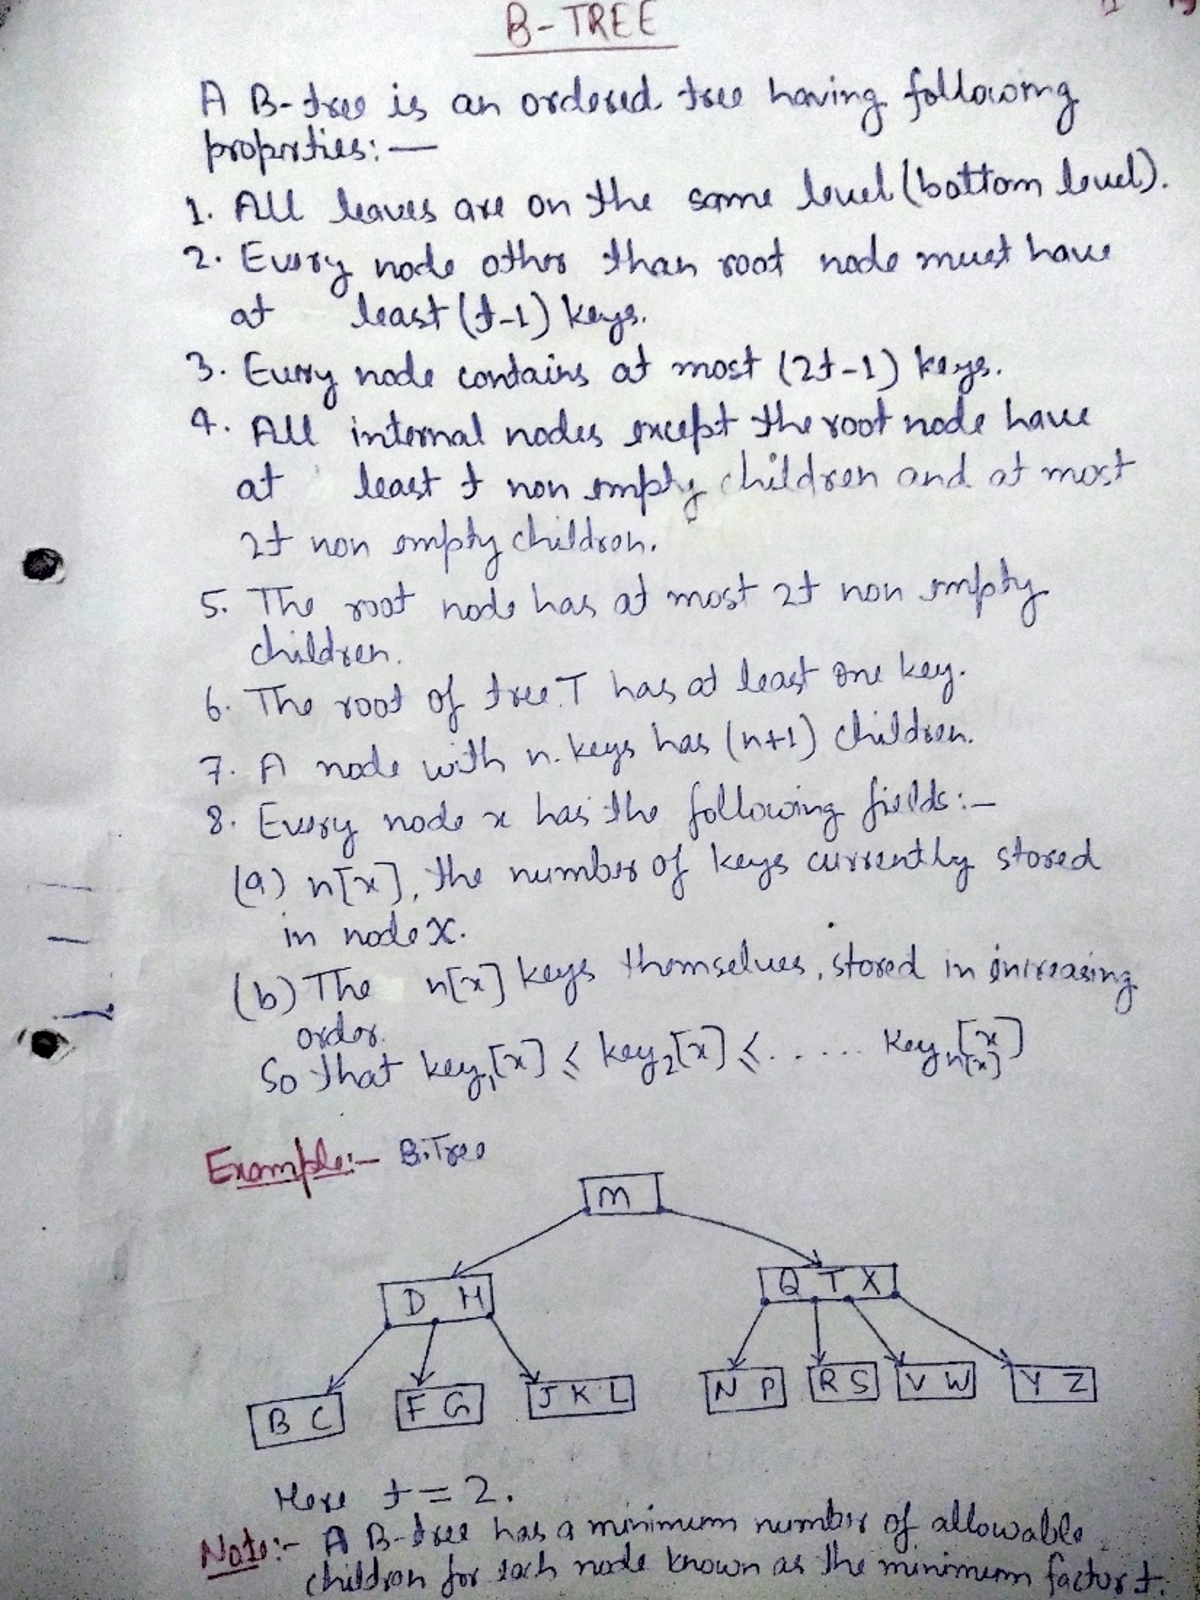 B-TREE
A B-tree is an ordered tree having following
properties:-
1. All leaves are on the same level (bottom level).
2. Every node other than root node must have
at least (t-1) keys.
3. Every node contains at most (2t-1) keys.
4. All internal nodes except the root node have
at least t non empty children and at most
2t non empty children.
5. The root node has at most 2t non empty
children.
6. The root of tree T has at least one key.
7. A node with n keys has (n+1) children.
8. Every node x has the following fields:-
(a) n[x], the number of keys currently stored
in node x.
(b) The n[x] keys themselves, stored in increasing
order.
So that key₁[x] ≤ key₂[x] ≤ ...... key n[x] [x]
Example:- B-Tree
M
D H Q T X
B C F G J K L N P R S V W Y Z
Here t = 2.
Note:- A B-tree has a minimum number of allowable
children for each node known as the minimum factor t.